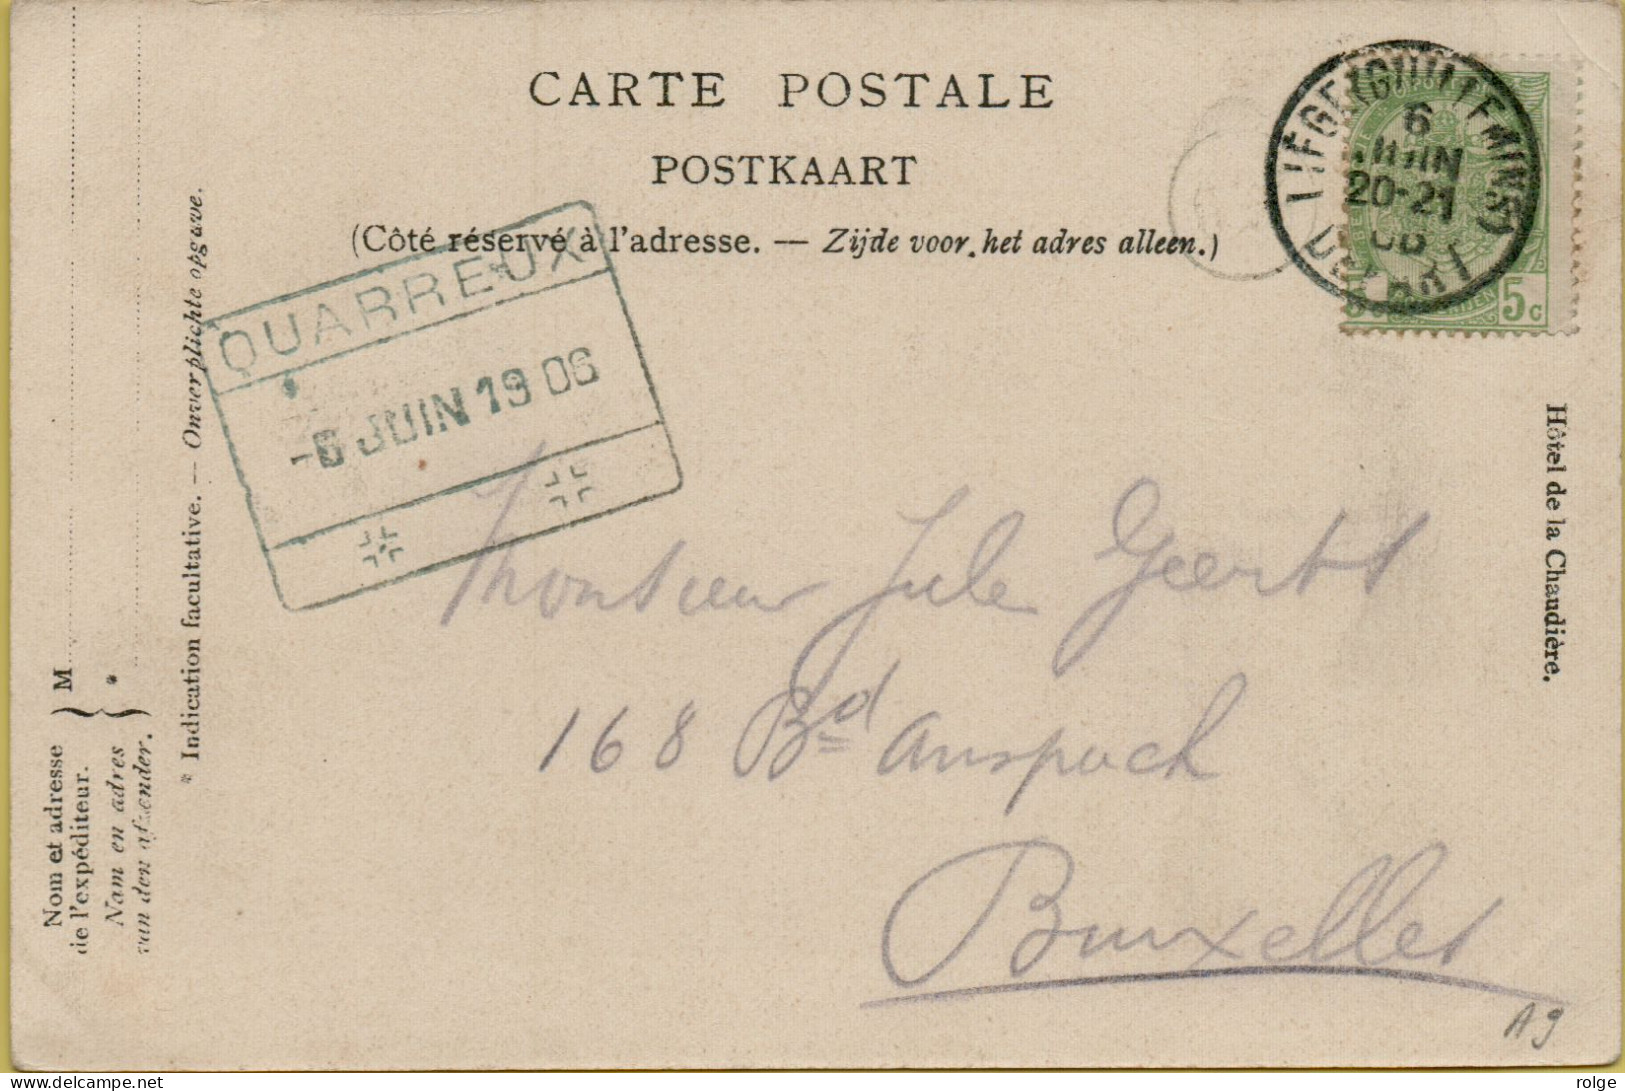 CARTE POSTALE
POSTKAART
(Côté réservé à l'adresse. — Zijde voor het adres alleen.)
LIEGE (GUILLEMINS)
6
JUIN
20-21
06
DEPART
5 c
QUARREUX
-6 JUIN 1906
Monsieur Jule Geerts
168 Bd Anspach
Bruxelles
Hôtel de la Chaudière.
* Indication facultative. — Onverplichte opgave.
M
*
Nom et adresse
de l'expéditeur.
Nam en adres
van den afzender.
A9
www.delcampe.net
rolge